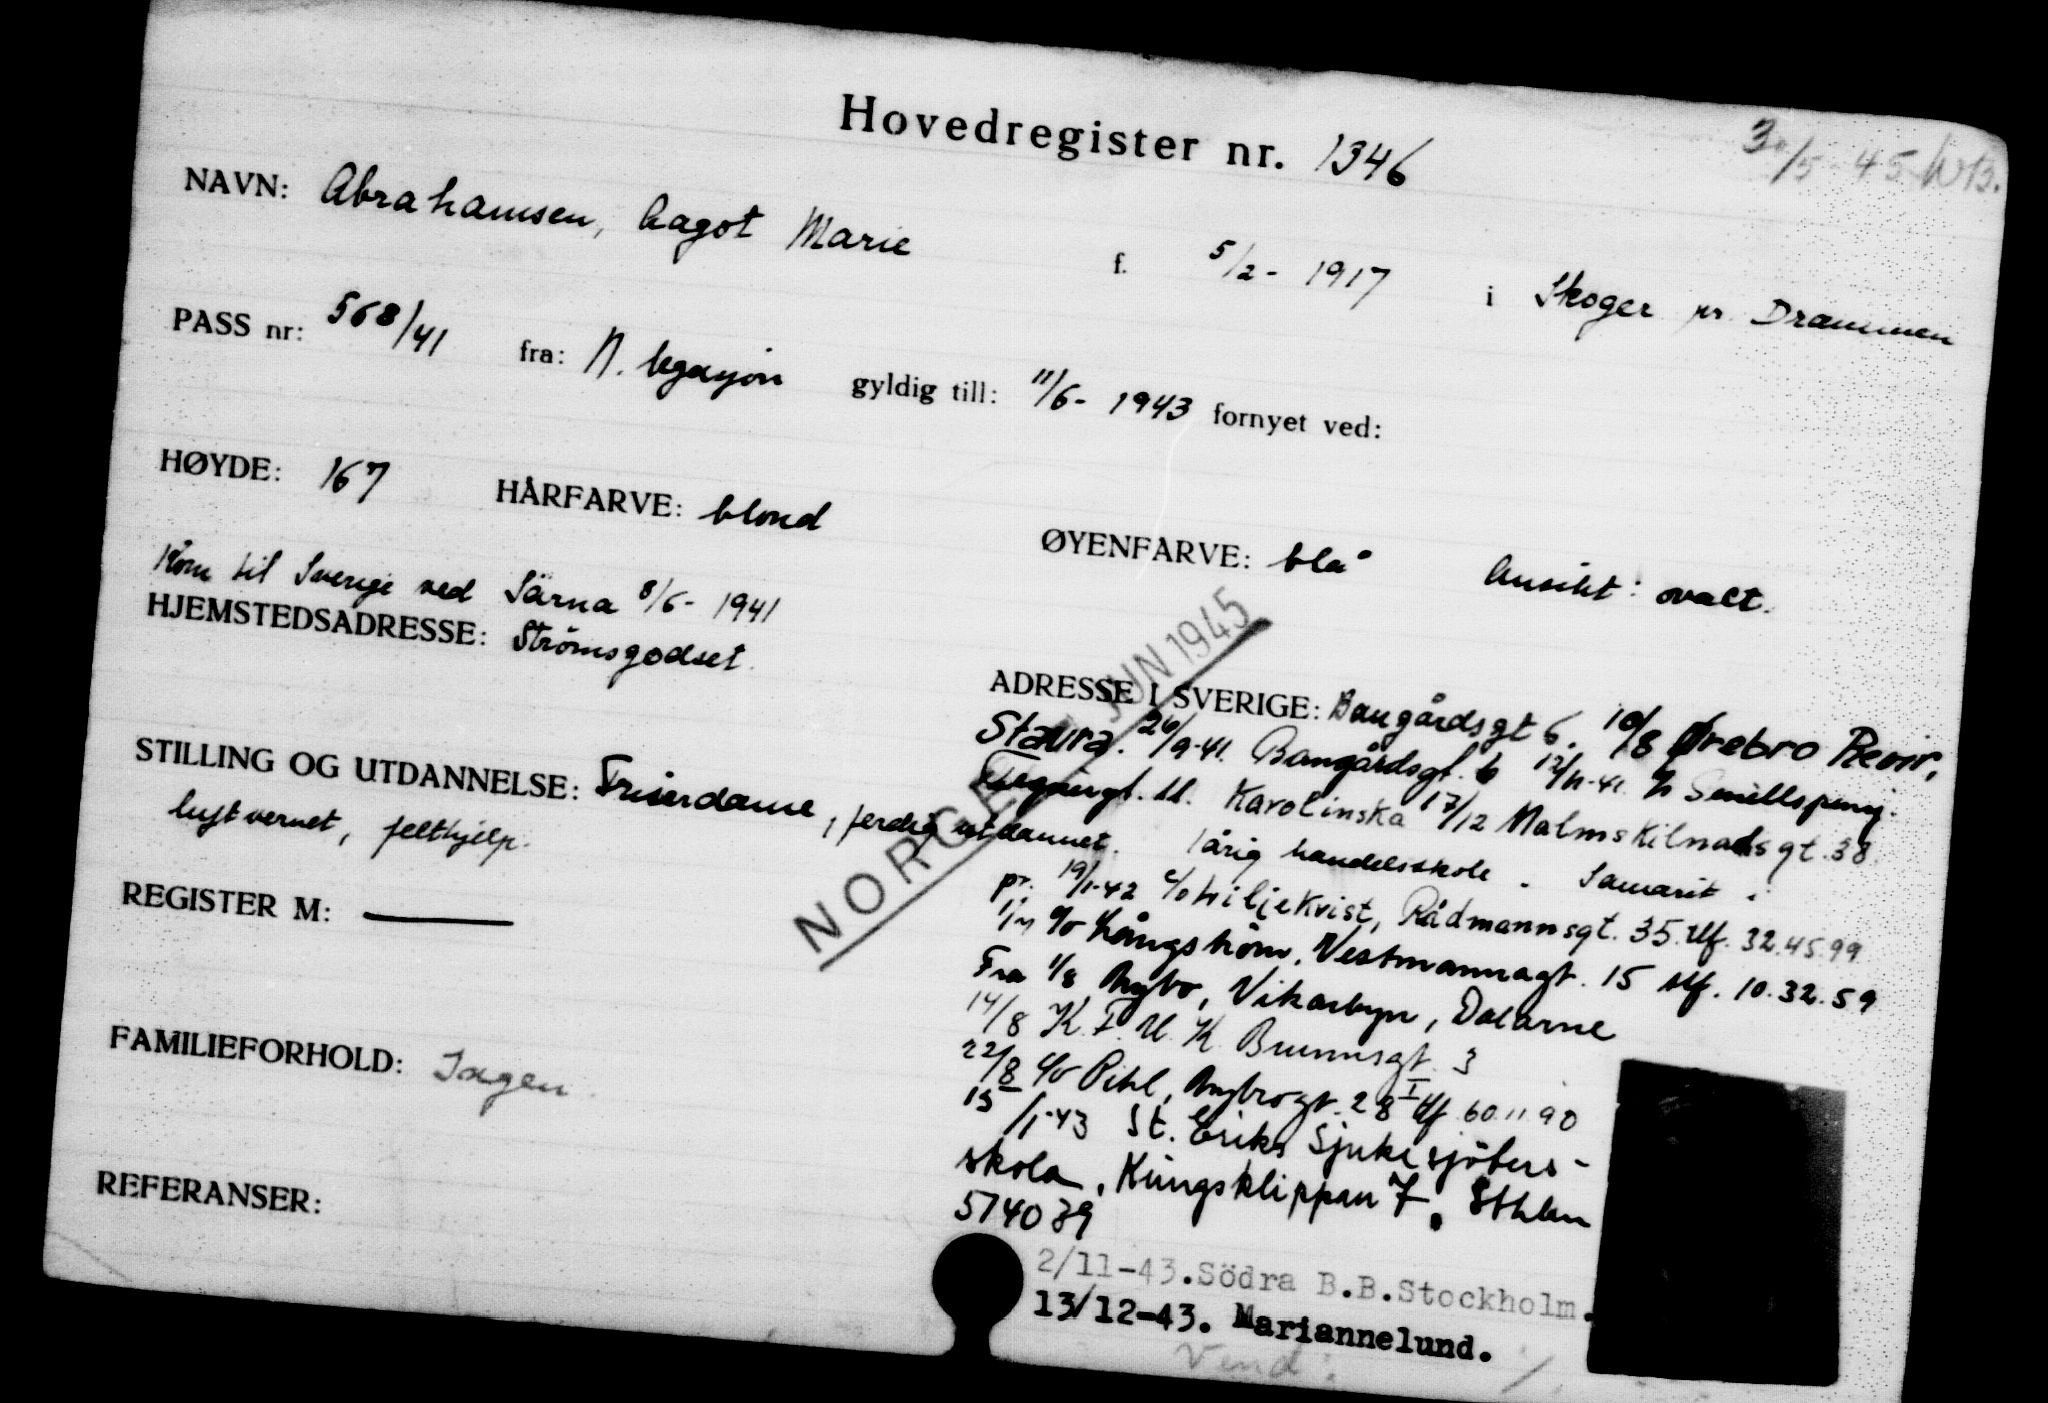 Hovedregister nr. 1346
30/5-45 WB.
NAVN: Abrahamsen, Aagot Marie f. 5/2- 1917 i Skoger pr. Drammen
PASS nr: 568/41 fra: N. legasjon gyldig till: 11/6- 1943 fornyet ved:
HØYDE: 167 HÅRFARVE: blond ØYENFARVE: blå Ansikt: ovalt.
Kom til Sverige ved Särna 8/6- 1941
HJEMSTEDSADRESSE: Strömsgodset.
ADRESSE I SVERIGE: Bangårdsgt 6. 10/8 Ørebro Revir,
Stavra. 26/9-41. Bangårdsgt. 6 12/11-41.
Karolinska 17/12 Malmskilnadsgt. 38
STILLING OG UTDANNELSE: Friserdame, ferdig utdannet. 1årig handelsskole. Samarit i
luftvernet, felthjelp.
NORGE JUN 1945
REGISTER M: —
pr. 19/1-42 c/o Liljekvist, Rådmannsgt. 35. tlf. 32.45.99
c/o Långström, Vestmannagt. 15 tlf. 10.32.59
Fra 1/8 Nybo, Vikarbyn, Dalarne
14/8 K.F.U.K. Brunnsgt. 3
FAMILIEFORHOLD: Ingen
22/8 c/o Pihl, Nybrogt. 28 I tlf. 60.11.90
15/1-43 St. Eriks Sjuksköters-
skola, Kungsklippan 7, Sthlm
574039
REFERANSER:
2/11-43. Södra B.B. Stockholm.
13/12-43. Mariannelund.
Vend!